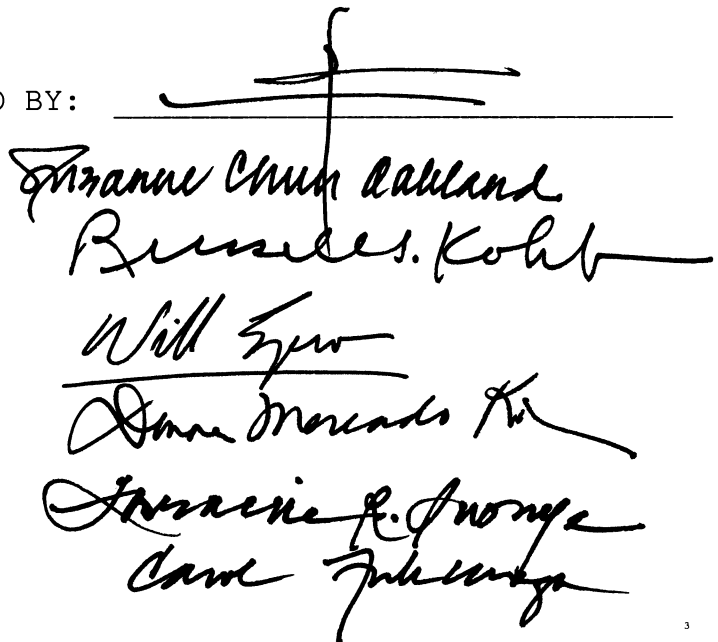 D BY:
Suzanne Chun Oakland
Russell S. Kokub
Will Espero
Donna Mercado Kim
Lorraine R. Inouye
Carol Fukunaga
3